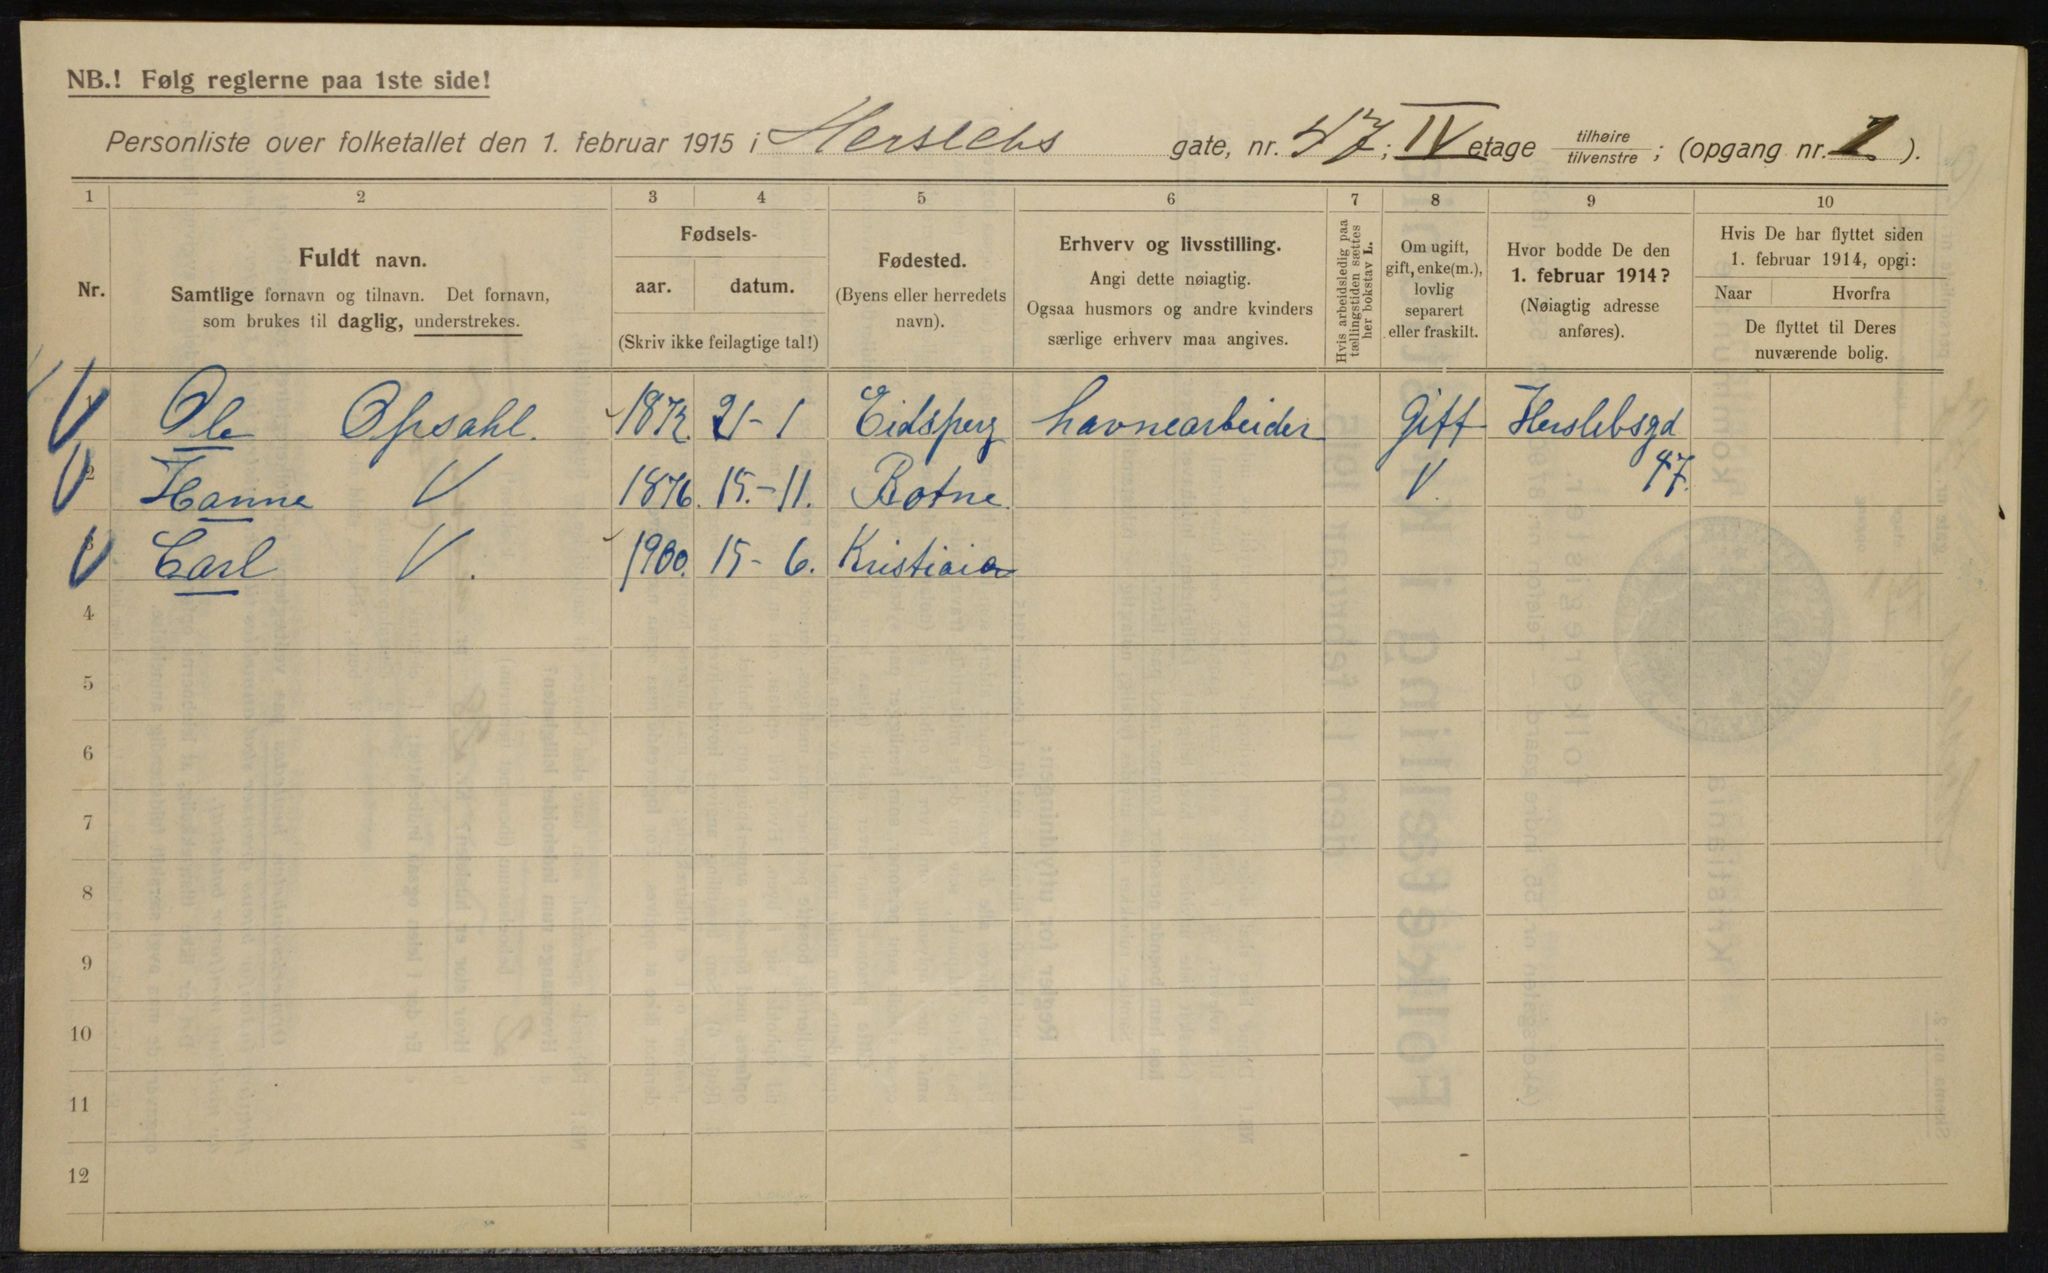 NB.! Følg reglerne paa 1ste side!
Personliste over folketallet den 1. februar 1915 i Herslebs gate, nr. 47; IV etage tilhøire/tilvenstre; (opgang nr. 1).
1 2 3 4 5 6 7 8 9 10
Nr.
Fuldt navn.
Samtlige fornavn og tilnavn. Det fornavn,
som brukes til daglig, understrekes.
Fødsels-
aar. datum.
(Skriv ikke feilagtige tal!)
Fødested.
(Byens eller herredets
navn).
Erhverv og livsstilling.
Angi dette nøiagtig.
Ogsaa husmors og andre kvinders
særlige erhverv maa angives.
Hvis arbeidsledig paa
tællingstiden sættes
her bokstav L.
Om ugift,
gift, enke(m.),
lovlig
separert
eller fraskilt.
Hvor bodde De den
1. februar 1914?
(Nøiagtig adresse
anføres).
Hvis De har flyttet siden
1. februar 1914, opgi:
Naar Hvorfra
De flyttet til Deres
nuværende bolig.
1 Ole Opsahl. 1872. 21-1 Eidsperg havnearbeider Gift Herslebsgd
2 Hanne V 1876. 15.-11. Botne V. 47.
3 Carl V. 1900. 15-6. Kristiaia
4
5
6
7
8
9
10
11
12